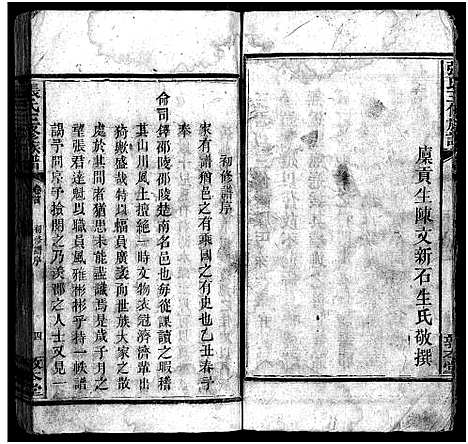 張氏三修族譜
廩貢生陳文新石生氏敬撰
初修譜序
家有譜猶邑之有乘國之有史也乙丑春予
奉
命司鐸邵陵邵陵楚南名邑也每從課讀之暇稽
其山川風土擅絕一時文物衣冠濟濟輩出
猗歟盛哉特以幅員廣袤而世族大家之散
處於其間者猶思未能盡識焉是歲子月之
望張君達魁以職員風雅彬彬乎持一帙譜
謁予問序予撿閱之乃羨鄒之人士又見一
張氏三修族譜
卷首
初修譜序
四
敦本堂